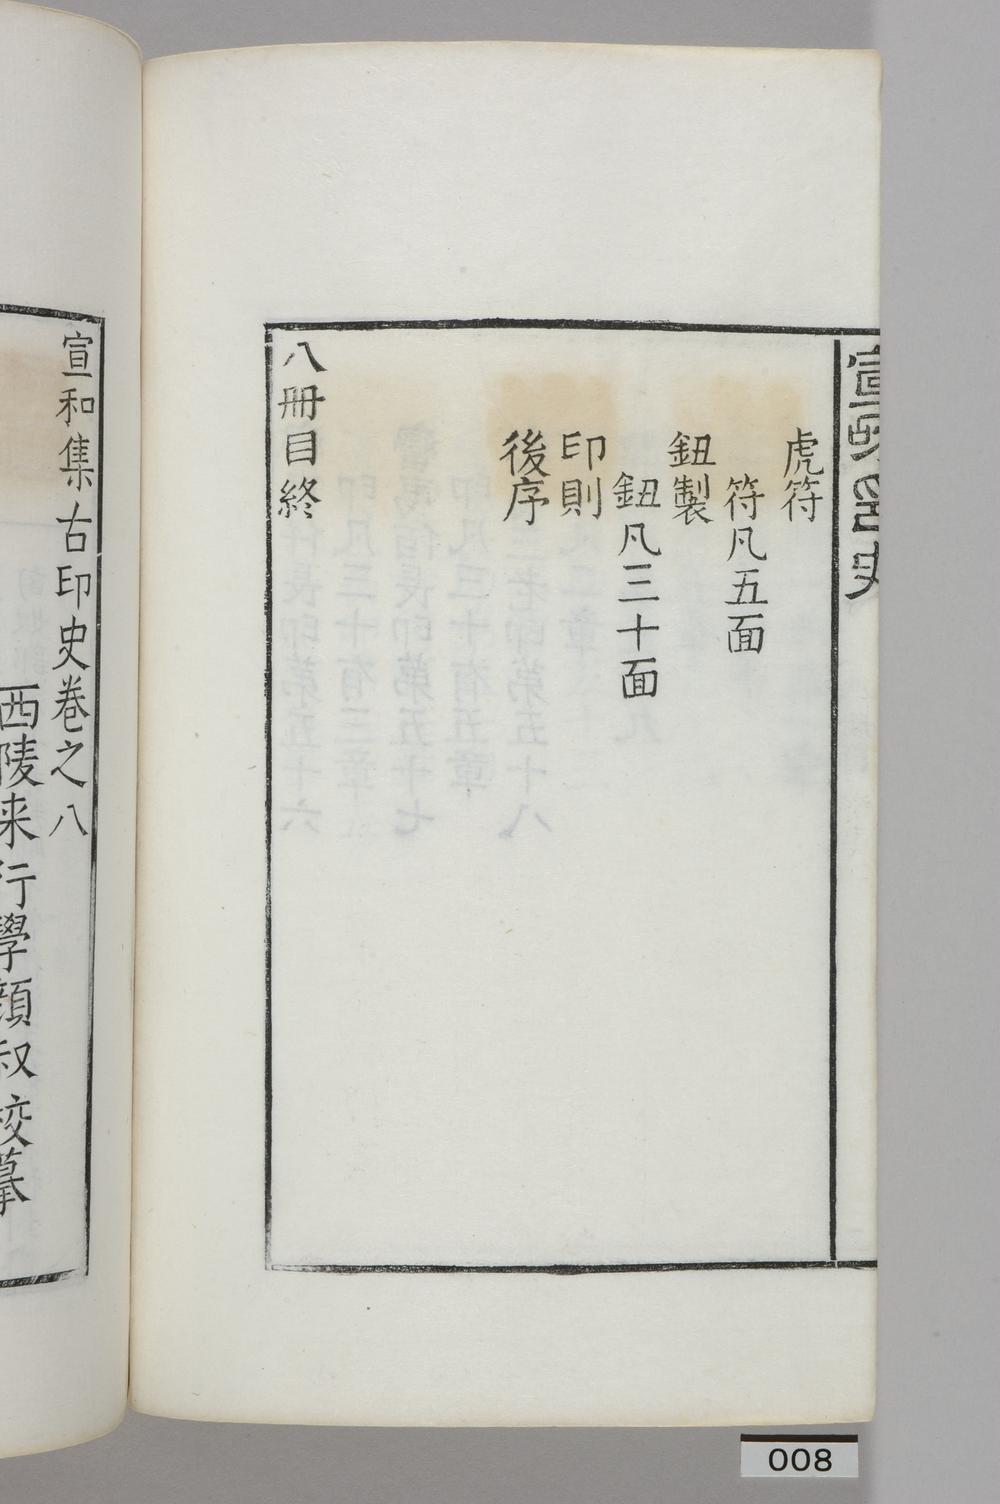 虎符
符凡五面
鈕製
鈕凡三十面
印則
後序
八冊目終
宣和集古印史卷之八
西陵来行學顏叔校摹
008